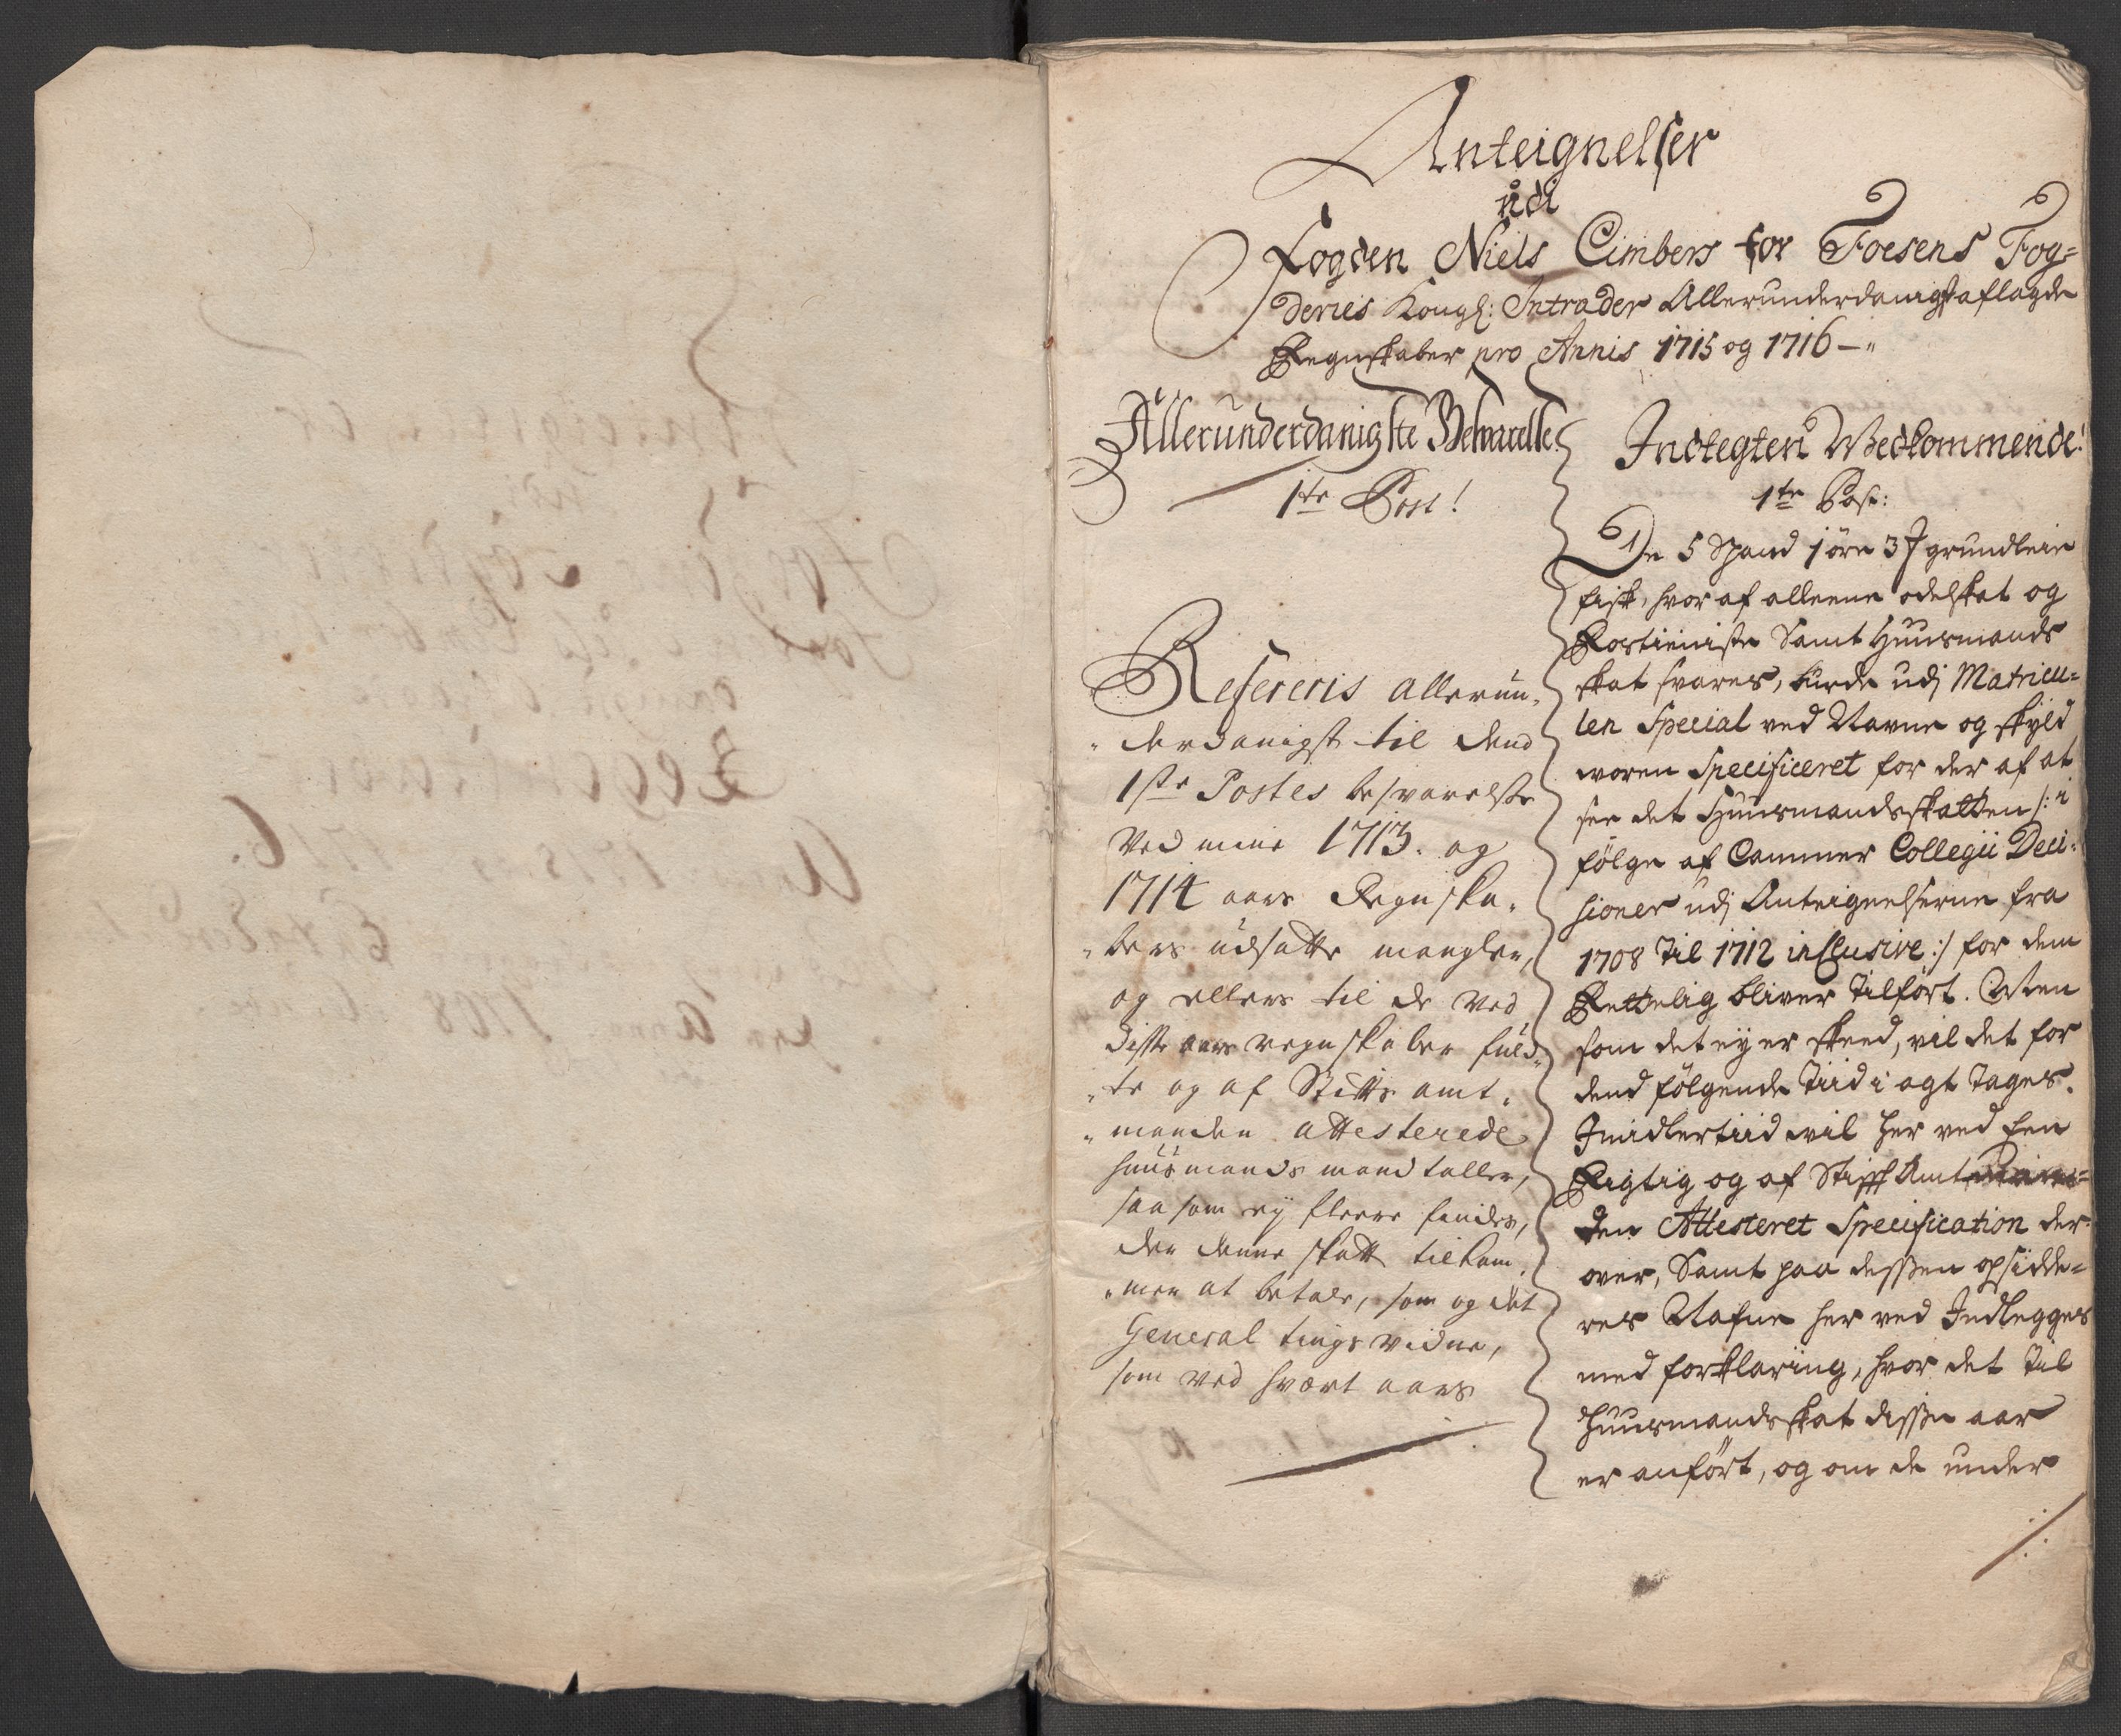 Anteignelser
udi
Fogden Niels Cimbers for Foesens Fog=
deries Kongl: Intrader Allerunderdanigst aflagde
Regnskaber pro Annis 1715 og 1716 –
Allerunderdanigste Besvarelse.
1te Post!
Refereris allerun,
derdanigst til dend
1ste Postes besvarelse
ved mine 1713. og
1714 aars Regnska,
bers udsatte mangler,
og ellers til de ved
disse aars regnskaber fuld,
te og af Stifts amt,
manden attesterede
huusmands mandtaller,
saa som ey fleere findes,
der denne skatt tilkom,
mer at betale, som og det
General tings vidne,
som ved hvert aars
Indtegten Wedkommende!
1te Post:
De 5 Spand 1 öre 3 grundleie
fisk, hvor af alleene odelskat og
Rostieniste Samt Huusmands
skat svares, burde udj Matricu=
len Special ved Navne og skyld
woren Specificeret for der af at
see det Huusmandsskatten /: i
fölge af Cammer Collegii Deci=
sioner udj Anteignelserne fra
1708 til 1712 inclusive :/ for dem
Rettelig bliver tilfört. Men
som det ey er skeed, vil det for
dend fölgende tiid i agt tages.
Imidlertiid wil her ved een
Rigtig og af Stifft Amtman=
den Attesteret Specification der
over, Samt paa dessen opsidde=
res Nafne her ved Indlegges
med forklaring, hvor det til
Huusmandsskat disse aar
er anfört, og om de under